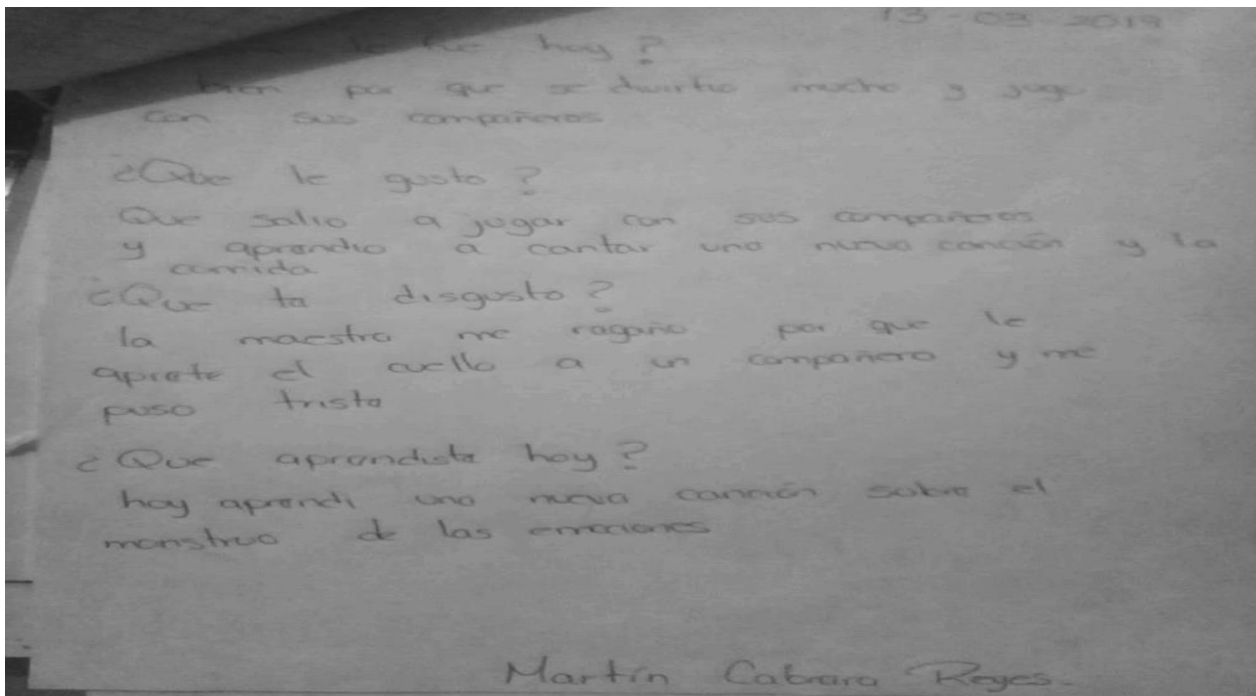 13-03-2019
le fue hoy?
bien por que se divirtio mucho y jugo
con sus compañeros
¿Que le gusto?
Que salio a jugar con sus compañeros
y aprendio a cantar una nueva canción y la
comida
¿Que te disgusto?
la maestra me regaño por que le
aprete el cuello a un compañero y me
puso triste
¿Que aprendiste hoy?
hoy aprendi una nueva canción sobre el
monstruo de las emociones
Martín Cabrera Reyes.